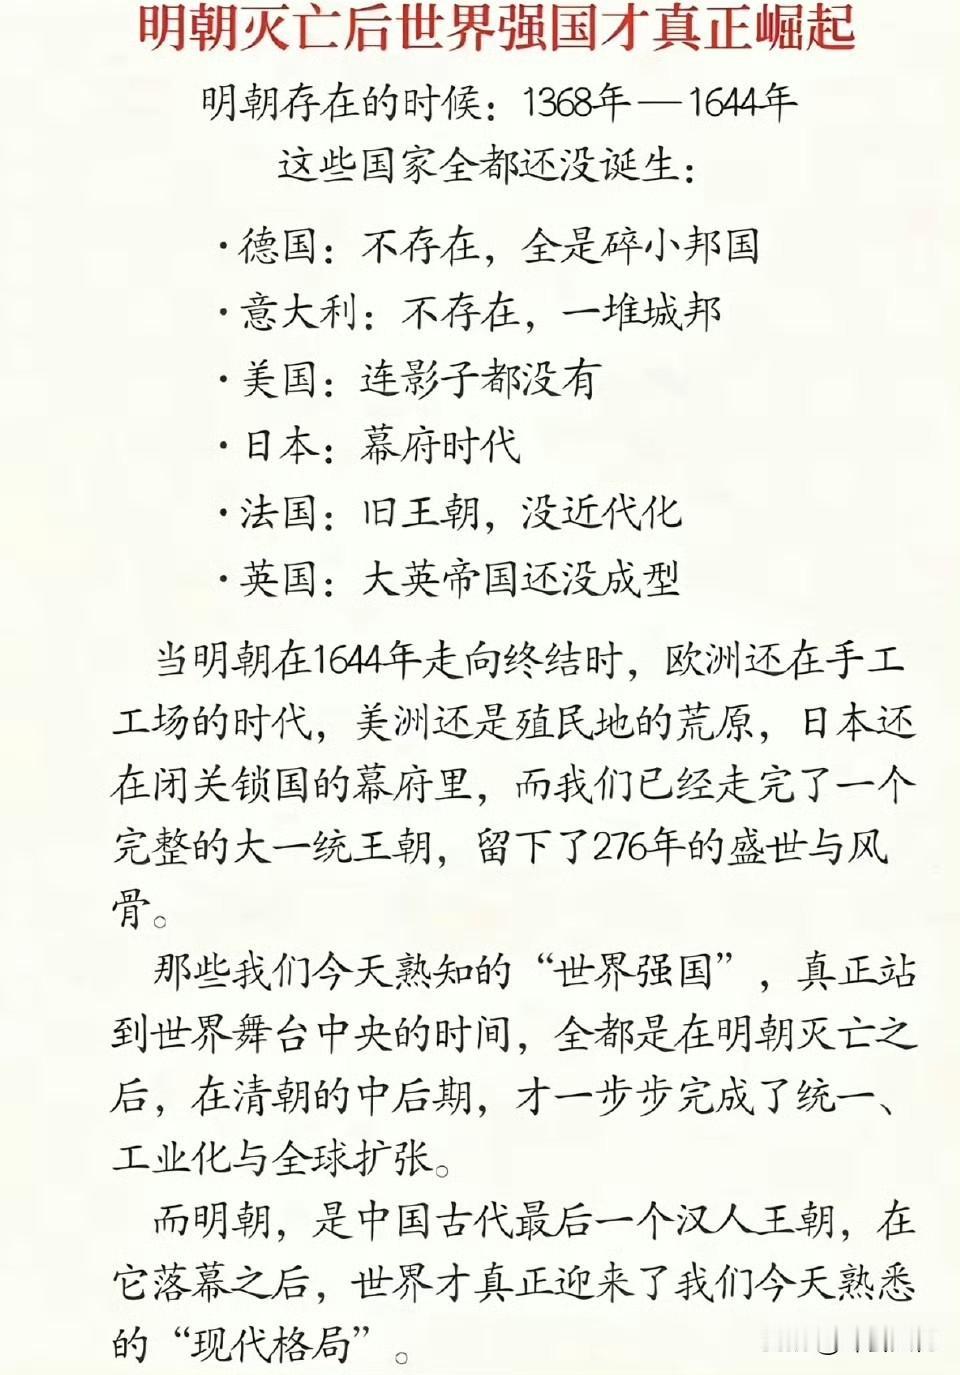 明朝灭亡后世界强国才真正崛起
明朝存在的时候：1368年—1644年
这些国家全都还没诞生：
·德国：不存在，全是碎小邦国
·意大利：不存在，一堆城邦
·美国：连影子都没有
·日本：幕府时代
·法国：旧王朝，没近代化
·英国：大英帝国还没成型
当明朝在1644年走向终结时，欧洲还在手工
工场的时代，美洲还是殖民地的荒原，日本还
在闭关锁国的幕府里，而我们已经走完了一个
完整的大一统王朝，留下了276年的盛世与风
骨。
那些我们今天熟知的“世界强国”，真正站
到世界舞台中央的时间，全都是在明朝灭亡之
后，在清朝的中后期，才一步步完成了统一、
工业化与全球扩张。
而明朝，是中国古代最后一个汉人王朝，在
它落幕之后，世界才真正迎来了我们今天熟悉
的“现代格局”。